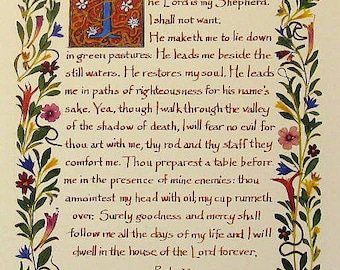 The Lord is my Shepherd.
I shall not want;
He maketh me to lie down
in green pastures: He leads me beside the
still waters. He restores my soul. He leads
me in paths of righteousness for his name's
sake. Yea, though I walk through the valley
of the shadow of death, I will fear no evil for
thou art with me, thy rod and thy staff they
comfort me. Thou preparest a table before
me in the presence of mine enemies: thou
annointest my head with oil, my cup runneth
over. Surely goodness and mercy shall
follow me all the days of my life and I will
dwell in the house of the Lord forever.